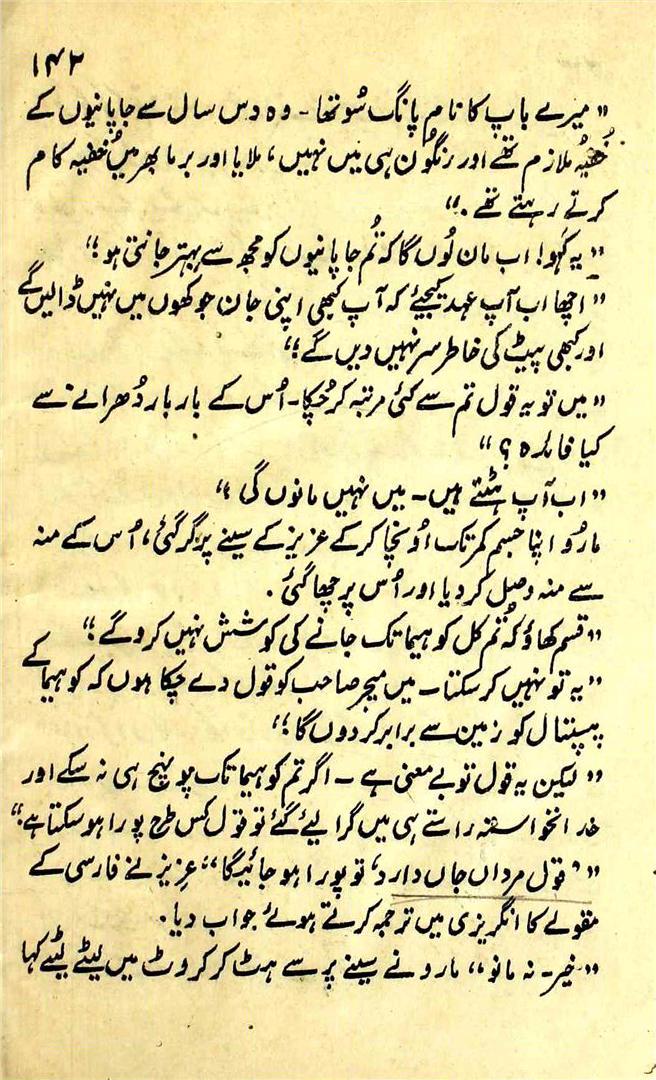 ۱۴۲
"میرے باپ کا نام پانگ سُو تھا - وہ دس سال سے جاپانیوں کے
خُفیہ ملازم تھے اور رنگُون ہی میں نہیں، ملایا اور برما بھر میں خُفیہ کام
کرتے رہتے تھے ۔"
"یہ کہو! اب مان لُوں گا کہ تُم جاپانیوں کو مجھ سے بہتر جانتی ہو !"
"اچھا اب آپ عہد کیجئے کہ آپ کبھی اپنی جان جوکھوں میں نہیں ڈالیں گے
اور کبھی پیٹ کی خاطر سر نہیں دیں گے !"
"میں تو یہ قول تم سے کئی مرتبہ کر چُکا - اُس کے بار بار دُھرانے سے
کیا فائدہ ؟"
"اب آپ ہٹتے ہیں - میں نہیں مانوں گی !"
مارُو اپنا جسم کمر تک اُونچا کر کے عزیز کے سینے پر گر گئی، اُس کے منہ
سے منہ وصل کر دیا اور اُس پر چھا گئی ۔
"قسم کھاؤ کہ تُم کل کوہیما تک جانے کی کوشش نہیں کرو گے !"
"یہ تو نہیں کر سکتا - میں میجر صاحب کو قول دے چکا ہوں کہ کوہیما کے
ہسپتال کو زمین سے برابر کر دوں گا !"
"لیکن یہ قول تو بے معنی ہے - اگر تم کوہیما تک پہونچ ہی نہ سکے اور
خدانخواستہ راستے ہی میں گرا لیے گئے تو قول کس طرح پورا ہو سکتا ہے ۔"
"'قول مرداں جاں دارد' تو پورا ہو جائیگا" عزیز نے فارسی کے
مقولے کا انگریزی میں ترجمہ کرتے ہوئے جواب دیا ۔
"خیر - نہ مانو" مارو نے سینے پر سے ہٹ کر کروٹ میں لیٹے لیٹے کہا